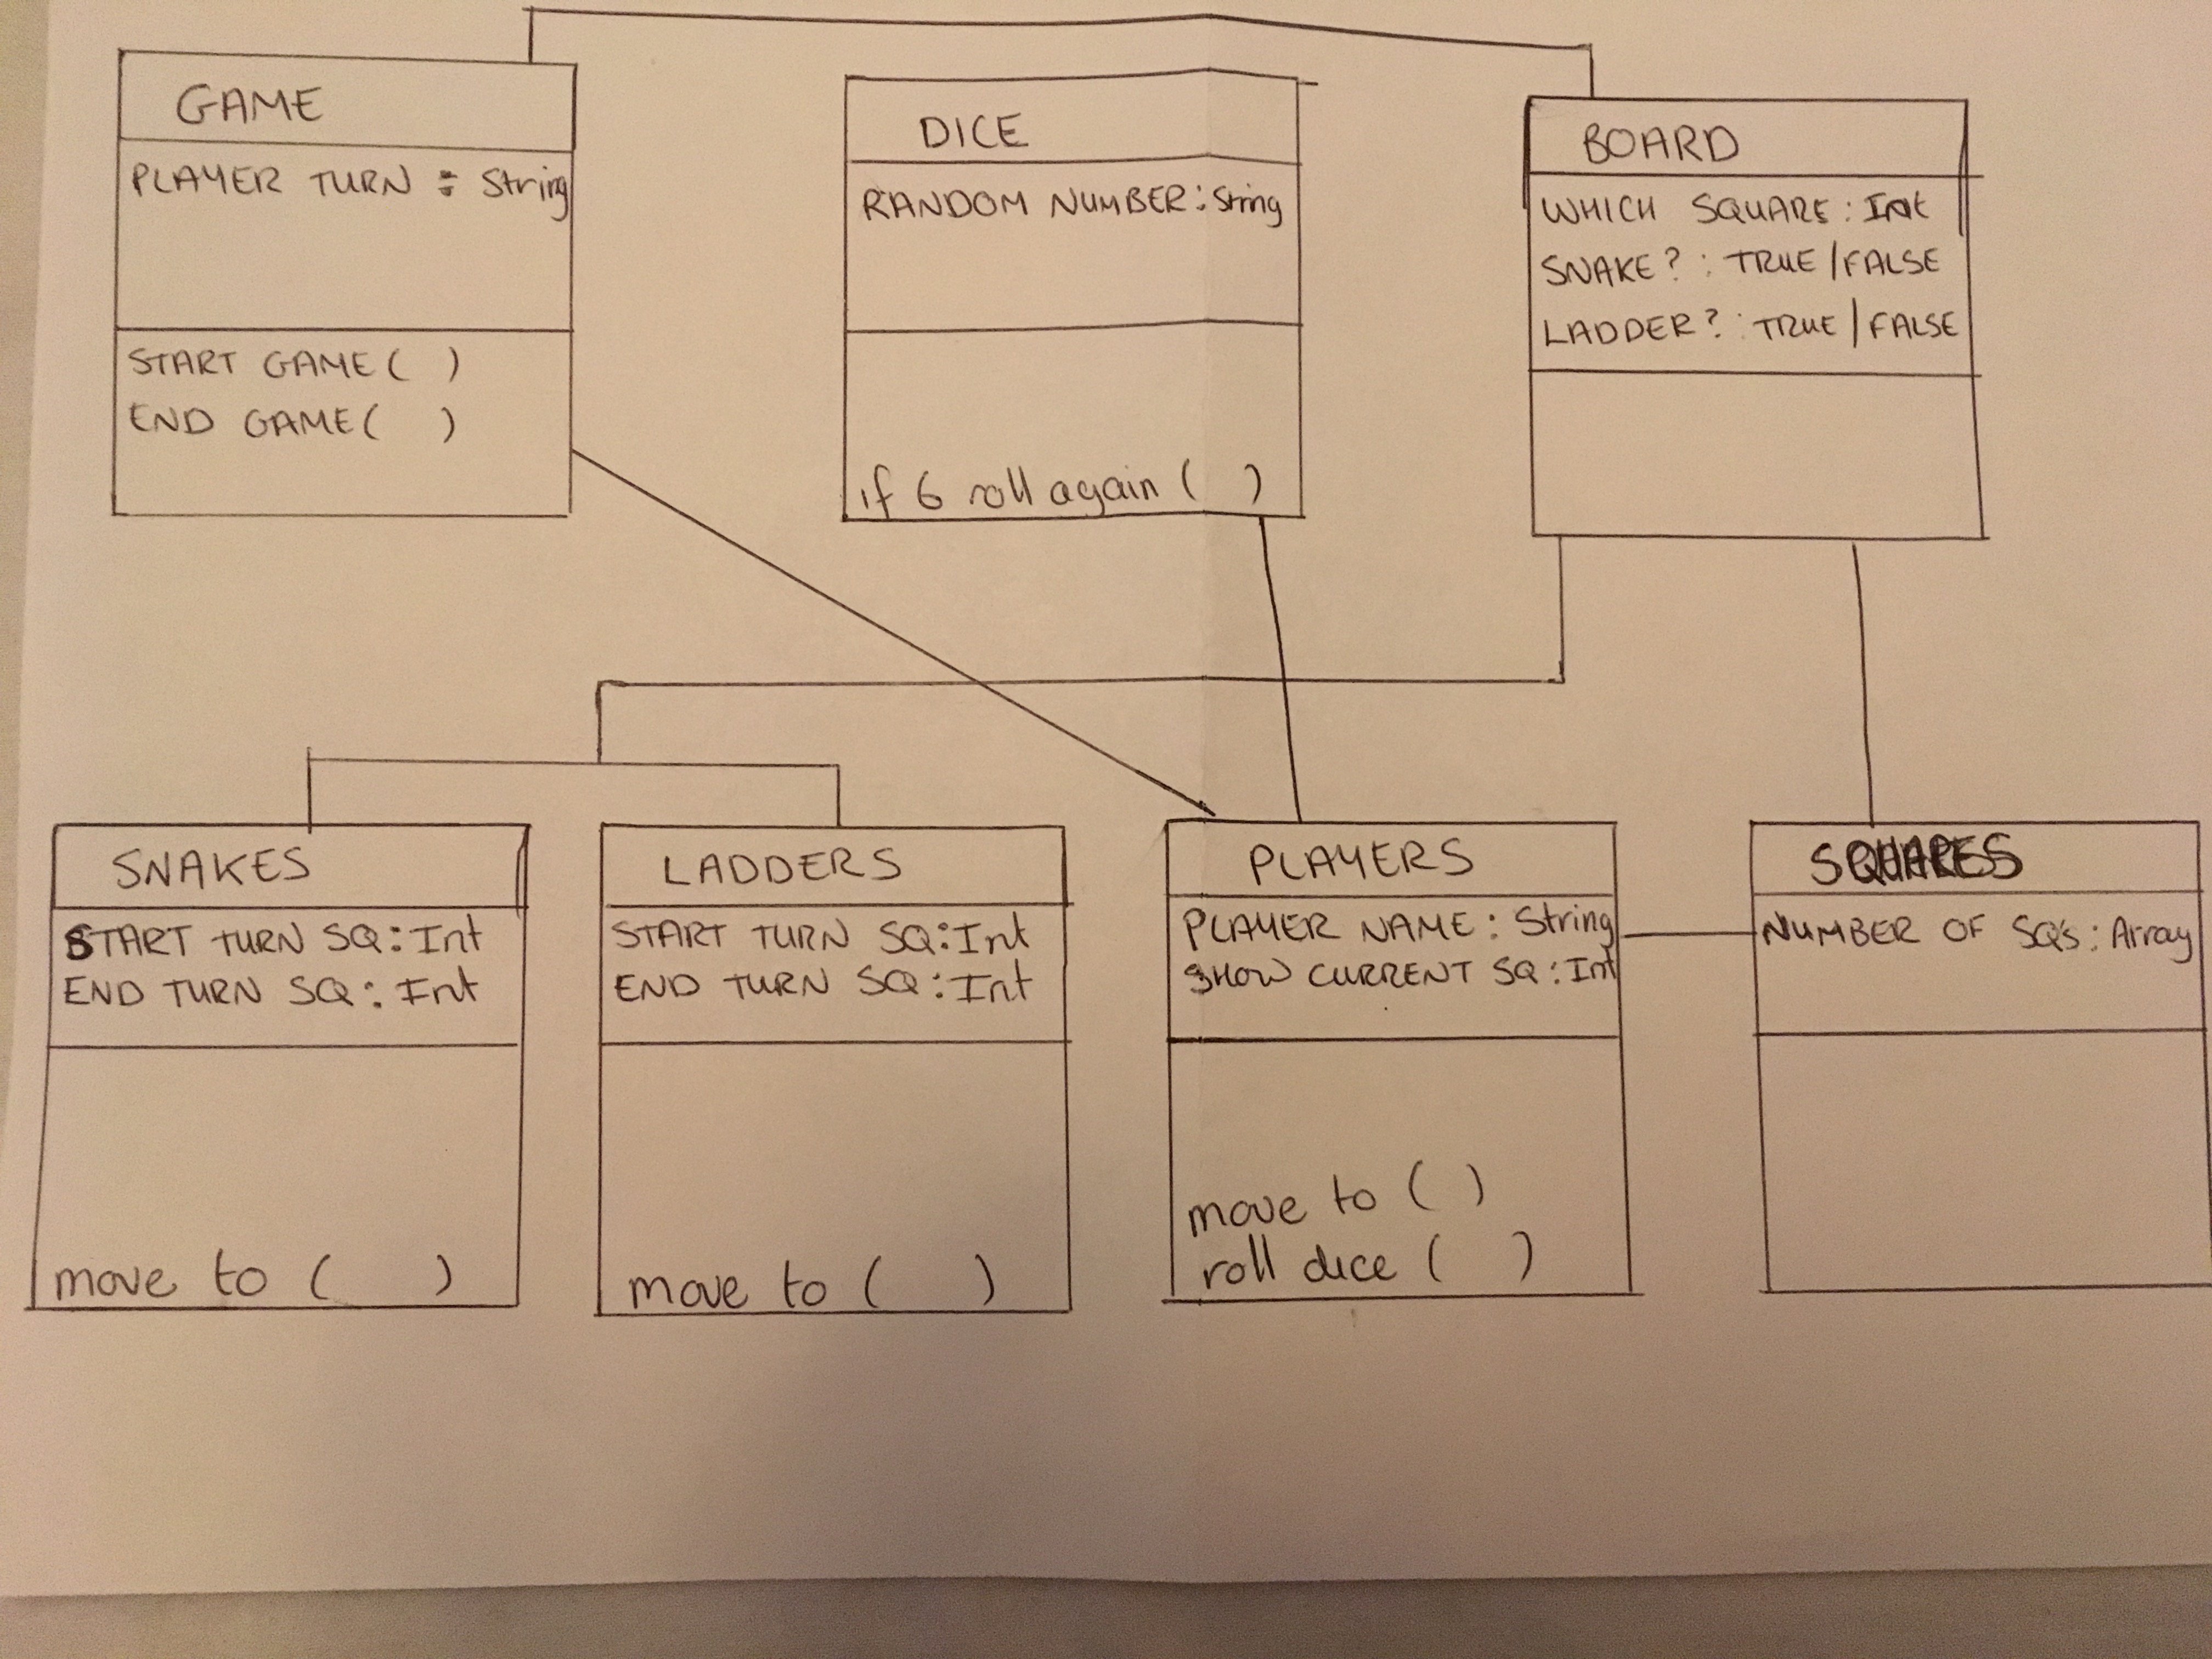 GAME
PLAYER TURN : String
START GAME ( )
END GAME ( )
DICE
RANDOM NUMBER : String
if 6 roll again ( )
BOARD
WHICH SQUARE : Int
SNAKE? : TRUE / FALSE
LADDER? : TRUE / FALSE
SNAKES
START TURN SQ : Int
END TURN SQ : Int
move to ( )
LADDERS
START TURN SQ : Int
END TURN SQ : Int
move to ( )
PLAYERS
PLAYER NAME : String
SHOW CURRENT SQ : Int
move to ( )
roll dice ( )
SQUARES
NUMBER OF SQ'S : Array